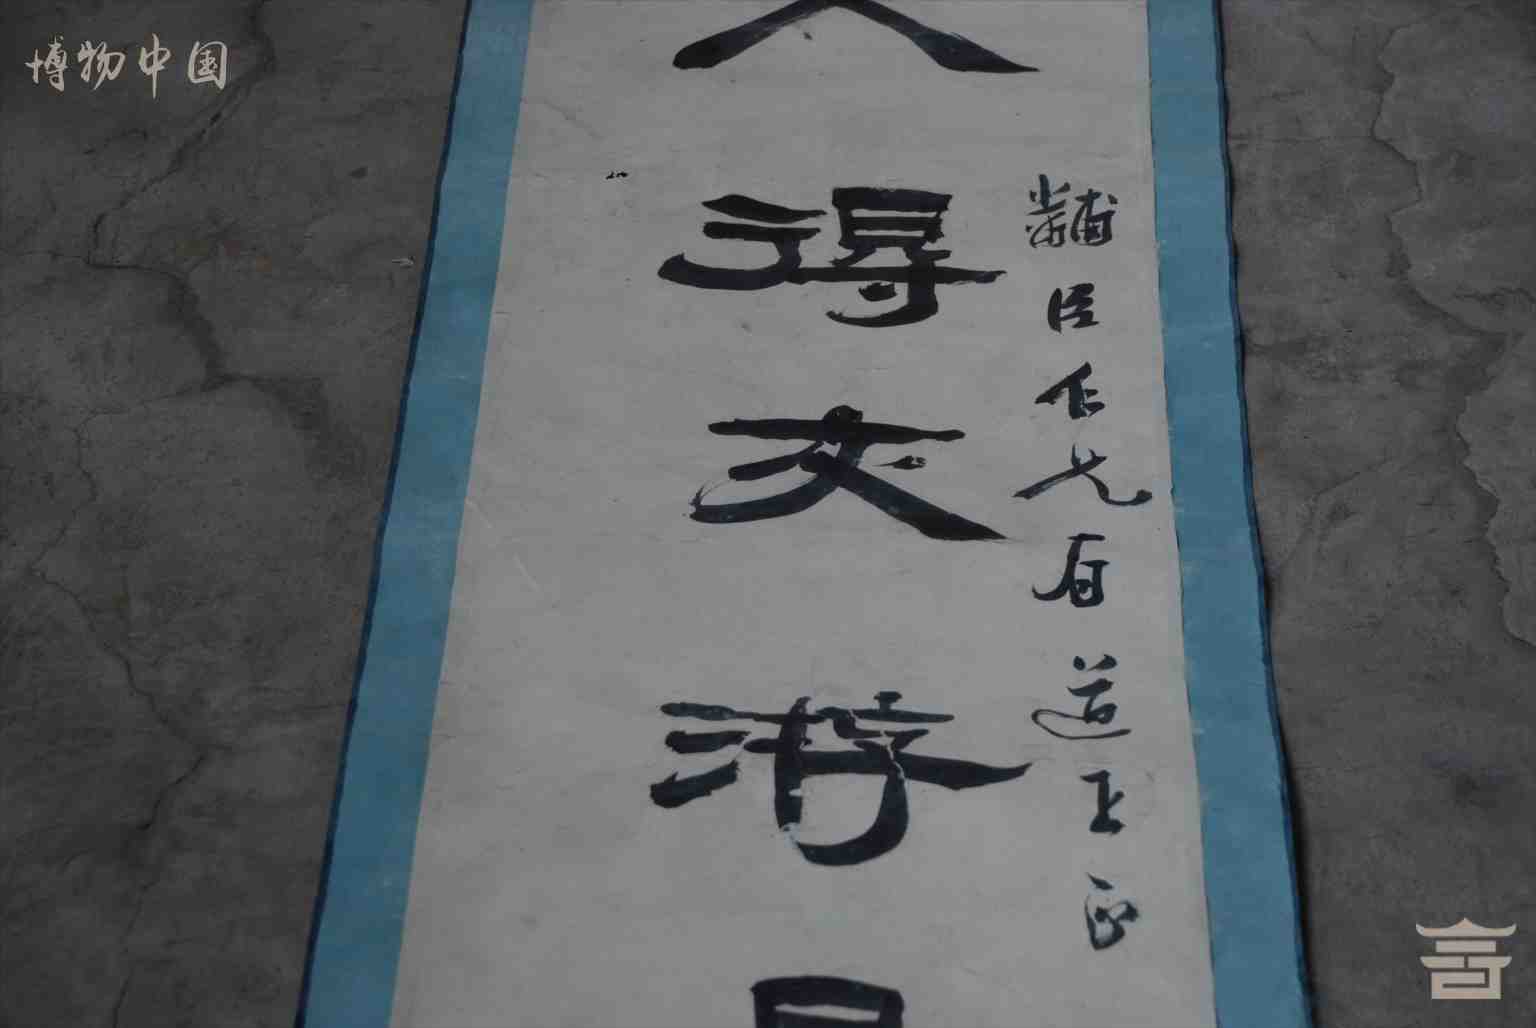 博物中国
黼臣仁兄有道正
人得交游